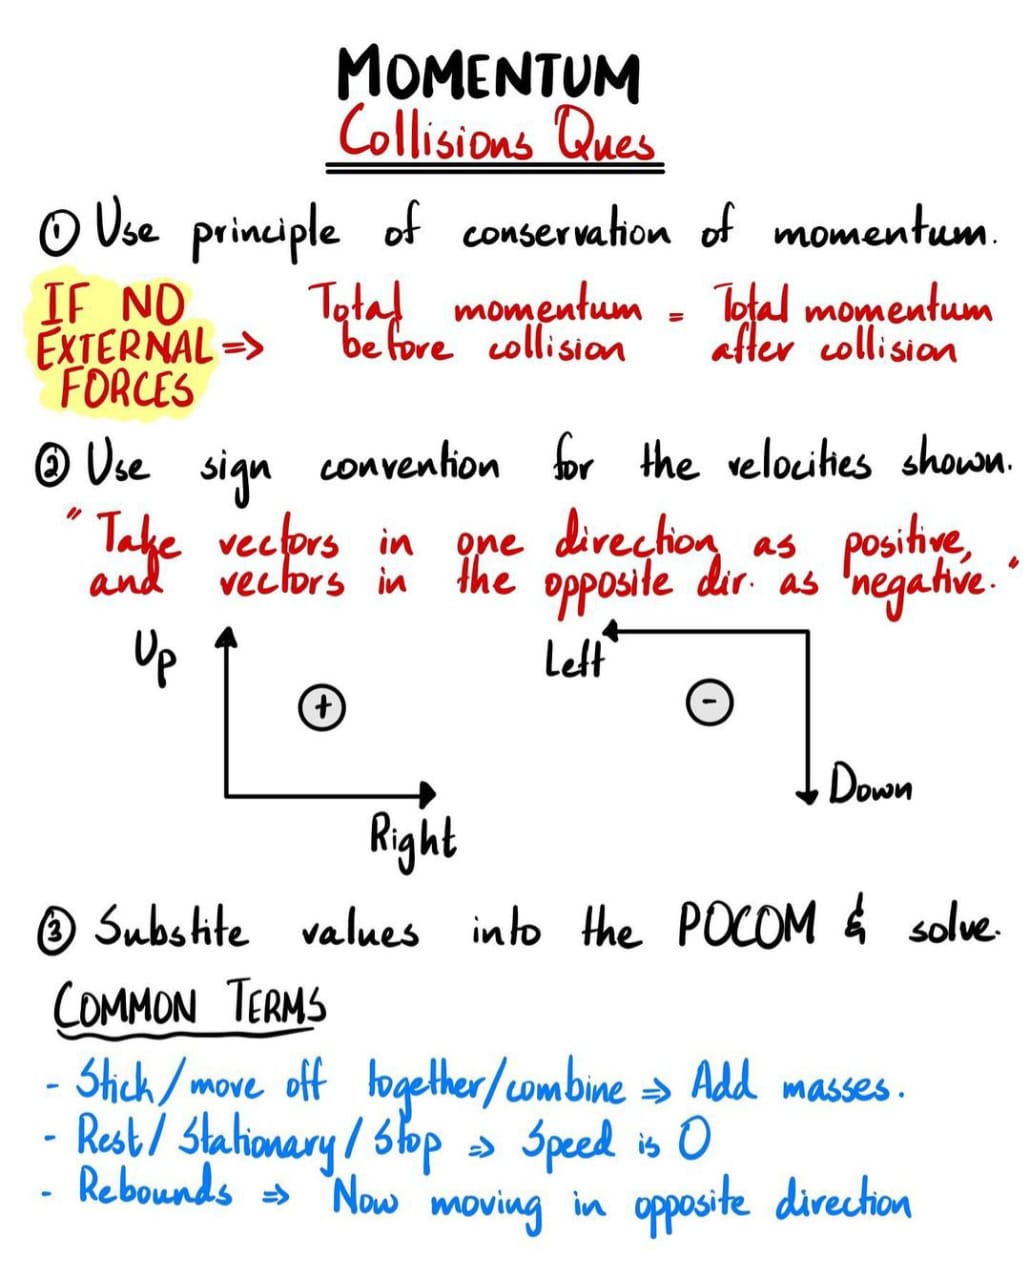 MOMENTUM
Collisions Ques
① Use principle of conservation of momentum.
IF NO EXTERNAL FORCES => Total momentum before collision = Total momentum after collision
② Use sign convention for the velocities shown.
"Take vectors in one direction as positive,
and vectors in the opposite dir. as negative."
Up
+
Right
Left
-
Down
③ Substite values into the POCOM & solve.
COMMON TERMS
- Stick/move off together/combine => Add masses.
- Rest/Stationary/Stop => Speed is 0
- Rebounds => Now moving in opposite direction